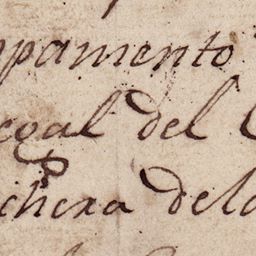 pamento
egal del
chera dela